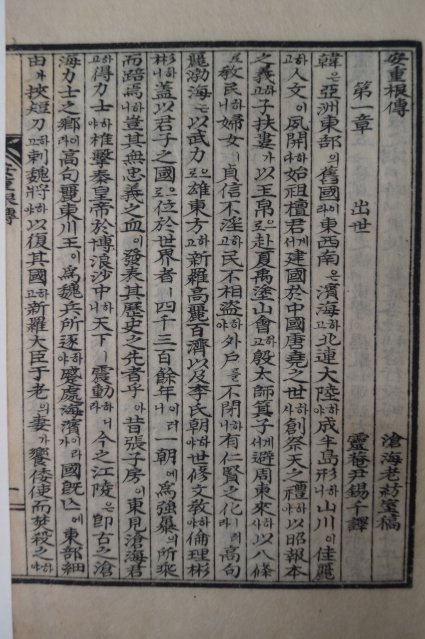 安重根傳 滄海老紡室稿
第一章 出世 靈菴尹錫千譯
韓은亞洲東部의舊國이라東西南은濱海하고北連大陸하야成半島形하니山川이佳麗
하고人文이夙開라始祖檀君게서建國於中國唐堯之世하사創祭天之禮하야以昭報本
之義하고子扶婁가以王帛으로赴夏禹塗山會하고殷太師箕子게서避周東來하사以八條
로敎民하니婦女ㅣ貞信不淫하고民不相盜하야外戶를不閉하니有仁賢之化러라高句
麗渤海는以武力으로雄東方하고新羅高麗百濟以及李氏朝하야世修文敎하야倫理彬
彬하니盖以君子之國으로位於世界者ㅣ四千三百餘年이러니一朝에爲强暴의所乘
而踣焉하니豈其無忠義之血이發表其歷史之先者乎아昔張子房이東見滄海君
하고得力士하야椎擊秦皇帝於博浪沙中하니天下ㅣ震動하니라今之江陵은卽古之滄
海力士之鄕이라高句麗東川王이爲魏兵所逐하야蹙處海濱이라가國旣亡에東部紐
由가挾短刀하고刺魏將하야以復其國하고新羅大臣于老의妻가饗倭使而焚殺之하야
安重根傳